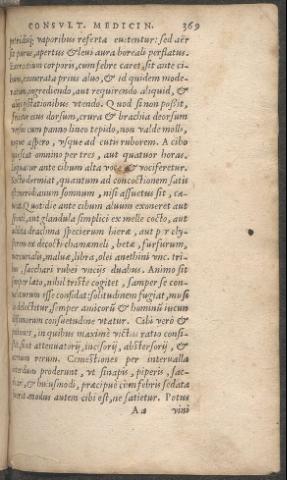 CONSVLT. MEDICIN. 369
vaporibus referta euitentur: sed aër
sit purus, apertus & leui aura boreali perflatus.
Exercitium corporis, cum febre caret, sit ante ci-
bum, exonerata prius aluo, & id quidem mode-
ratum, ingrediendo, aut requirendo aliquid, &
vtendo. Quod si non possit,
eius dorsum, crura & brachia deorsum
cum panno lineo tepido, non valde molli,
aspero, vsque ad cutis ruborem. A cibo
omnino per tres, aut quatuor horas.
ante cibum alta voce & vociferetur.
dormiat, quantum ad concoctionem satis
somnum, nisi assuetus sit, ca-
Quotidie ante cibum aluum exoneret aut
aut glandula simplici ex melle cocto, aut
addita drachma specierum hieræ, aut per clyst-
ex decocti chamæmeli, betæ, furfurum,
mercurialis, maluæ, libra, olei anethini vnc. tri-
bus, sacchari rubei vncijs duabus. Animo sit
semper læto, nihil triste cogitet, semper se con-
esse confidat: solitudinem fugiat, musi-
delectetur, semper amicorū & hominū iucun-
consuetudine vtatur. Cibi verò &
in quibus maximè victus ratio consi-
sint attenuatorij, incisorij, abstersorij, &
verum. Comestiones per interualla
proderunt, vt sinapis, piperis, sac-
& huiusmodi, præcipuè cum febris sedata
modus autem cibi est, ne satietur. Potus
Aa vini